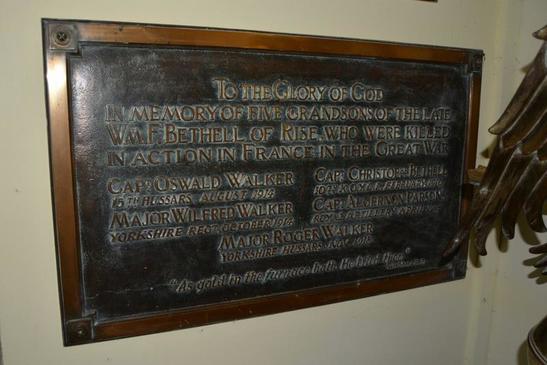 TO THE GLORY OF GOD
IN MEMORY OF FIVE GRANDSONS OF THE LATE
WM. F. BETHELL OF RISE, WHO WERE KILLED
IN ACTION IN FRANCE IN THE GREAT WAR
CAPT. OSWALD WALKER
15TH HUSSARS, AUGUST 1914
MAJOR WILFRED WALKER
YORKSHIRE REGT. OCTOBER 1914
CAPT. CHRISTOPHER BETHELL
FEBRUARY
CAPT. ALGERNON PARSON
ROYAL ARTILLERY, APRIL
MAJOR ROGER WALKER
YORKSHIRE HUSSARS, MAY
"As gold in the furnace hath He tried them"